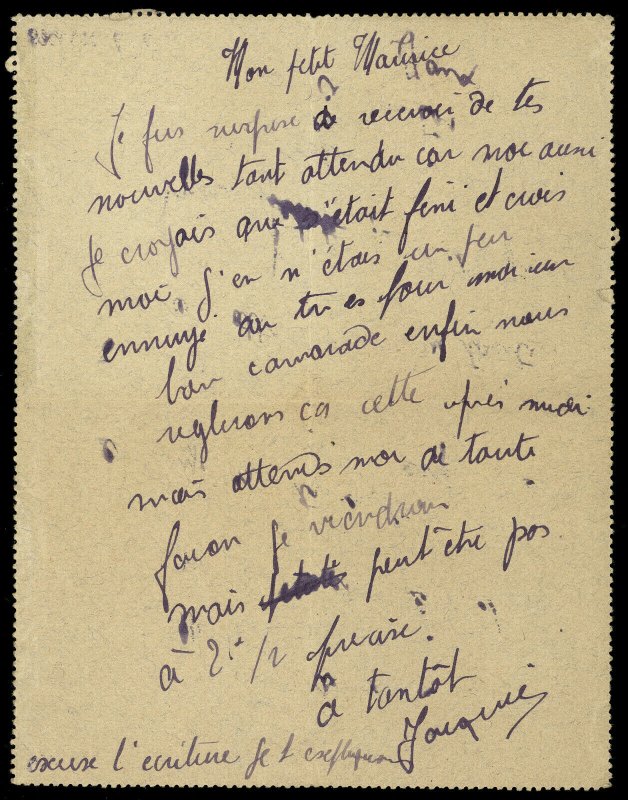 Mon petit Maurice
Je fus surprise de recevoir de tes
nouvelles tant attendu car moi aussi
je croyais que s'était fini et crois
moi j'en n'étais un peu
ennuyé car tu es pour moi un
bon camarade enfin nous
reglerons ca cette après midi
mais attends moi de toute
facon je viendrai
mais peut-être pas
à 2 1/2 precise.
à tantôt
Jacquie
excuse l'ecriture je t'expliquerai